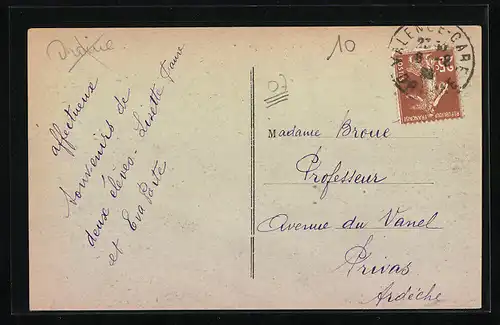 Ardèche
10
07
VALENCE-GARE
affectueux
souvenirs de
deux élèves - Lisette Faure
et Eva Porte
Madame Broue
Professeur
Avenue du Vanel
Privas
Ardèche